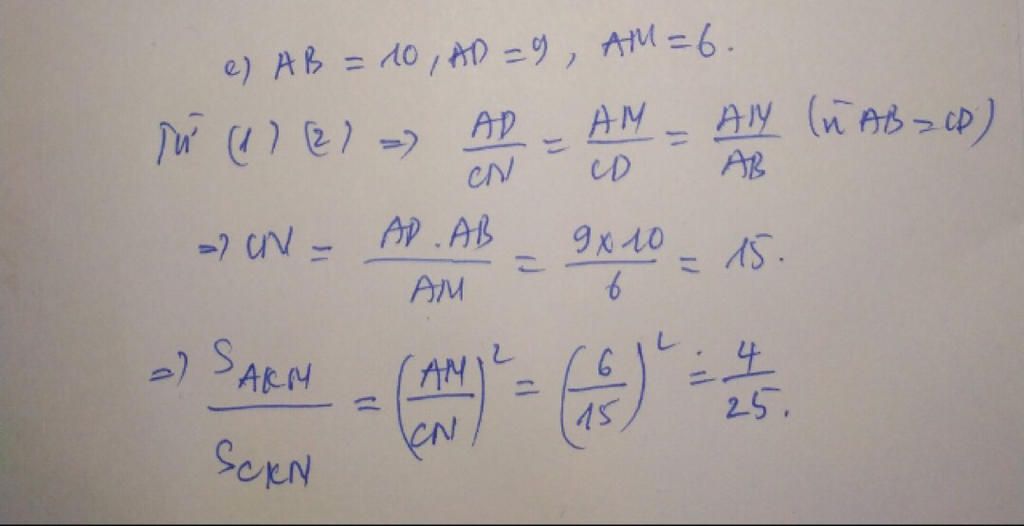 c) AB = 10, AD = 9, AM = 6.
Từ (1) (2) => AD/CN = AM/CD = AM/AB (vì AB = CD)
=> CN = AD.AB/AM = 9x10/6 = 15.
=> S_AKM/S_CKN = (AM/CN)² = (6/15)² = 4/25.